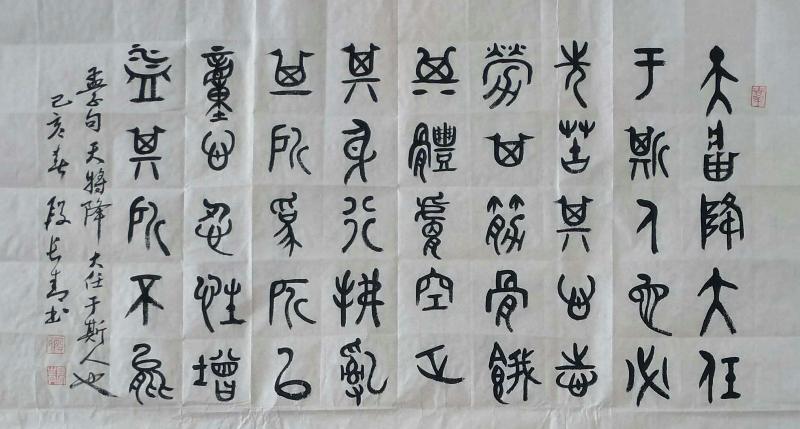 天將降大任
于斯人也必
先苦其心志
勞其筋骨餓
其體膚空乏
其身行拂亂
其所爲所以
動心忍性增
益其所不能
孟子句天將降大任于斯人也
己亥春段长青书